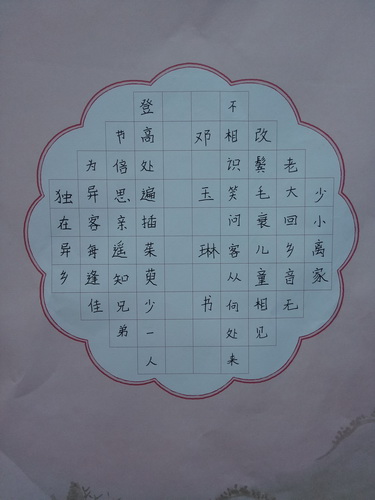 少小离家
老大回乡音无
改鬓毛衰儿童相见
不相识笑问客从何处来
邓玉琳书
登高处遍插茱萸少一人
节倍思亲遥知兄弟
为异客每逢佳
独在异乡